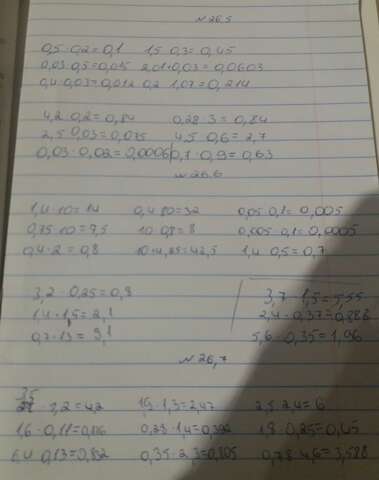 № 26,5
0,5 · 0,2 = 0,1 1,5 · 0,3 = 0,45
0,03 · 0,5 = 0,015 2,01 · 0,03 = 0,0603
0,4 · 0,03 = 0,012 0,2 · 1,07 = 0,214
4,2 · 0,2 = 0,84 0,28 · 3 = 0,84
2,5 · 0,03 = 0,075 4,5 · 0,6 = 2,7
0,03 · 0,02 = 0,0006 0,7 · 0,9 = 0,63
№ 26,6
1,4 · 10 = 14 0,4 · 80 = 32 0,05 · 0,1 = 0,005
0,75 · 10 = 7,5 10 · 0,8 = 8 0,005 · 0,1 = 0,0005
0,4 · 2 = 0,8 10 · 4,25 = 42,5 1,4 · 0,5 = 0,7
3,2 · 0,25 = 0,8 3,7 · 1,5 = 5,55
1,4 · 1,5 = 2,1 2,4 · 0,37 = 0,888
0,7 · 13 = 9,1 5,6 · 0,35 = 1,96
№ 26,7
· 1,2 = 42 1,9 · 1,3 = 2,47 2,5 · 2,4 = 6
1,6 · 0,11 = 0,176 0,28 · 1,4 = 0,392 1,8 · 0,25 = 0,45
6,4 · 0,13 = 0,832 0,35 · 2,3 = 0,805 0,78 · 4,6 = 3,588